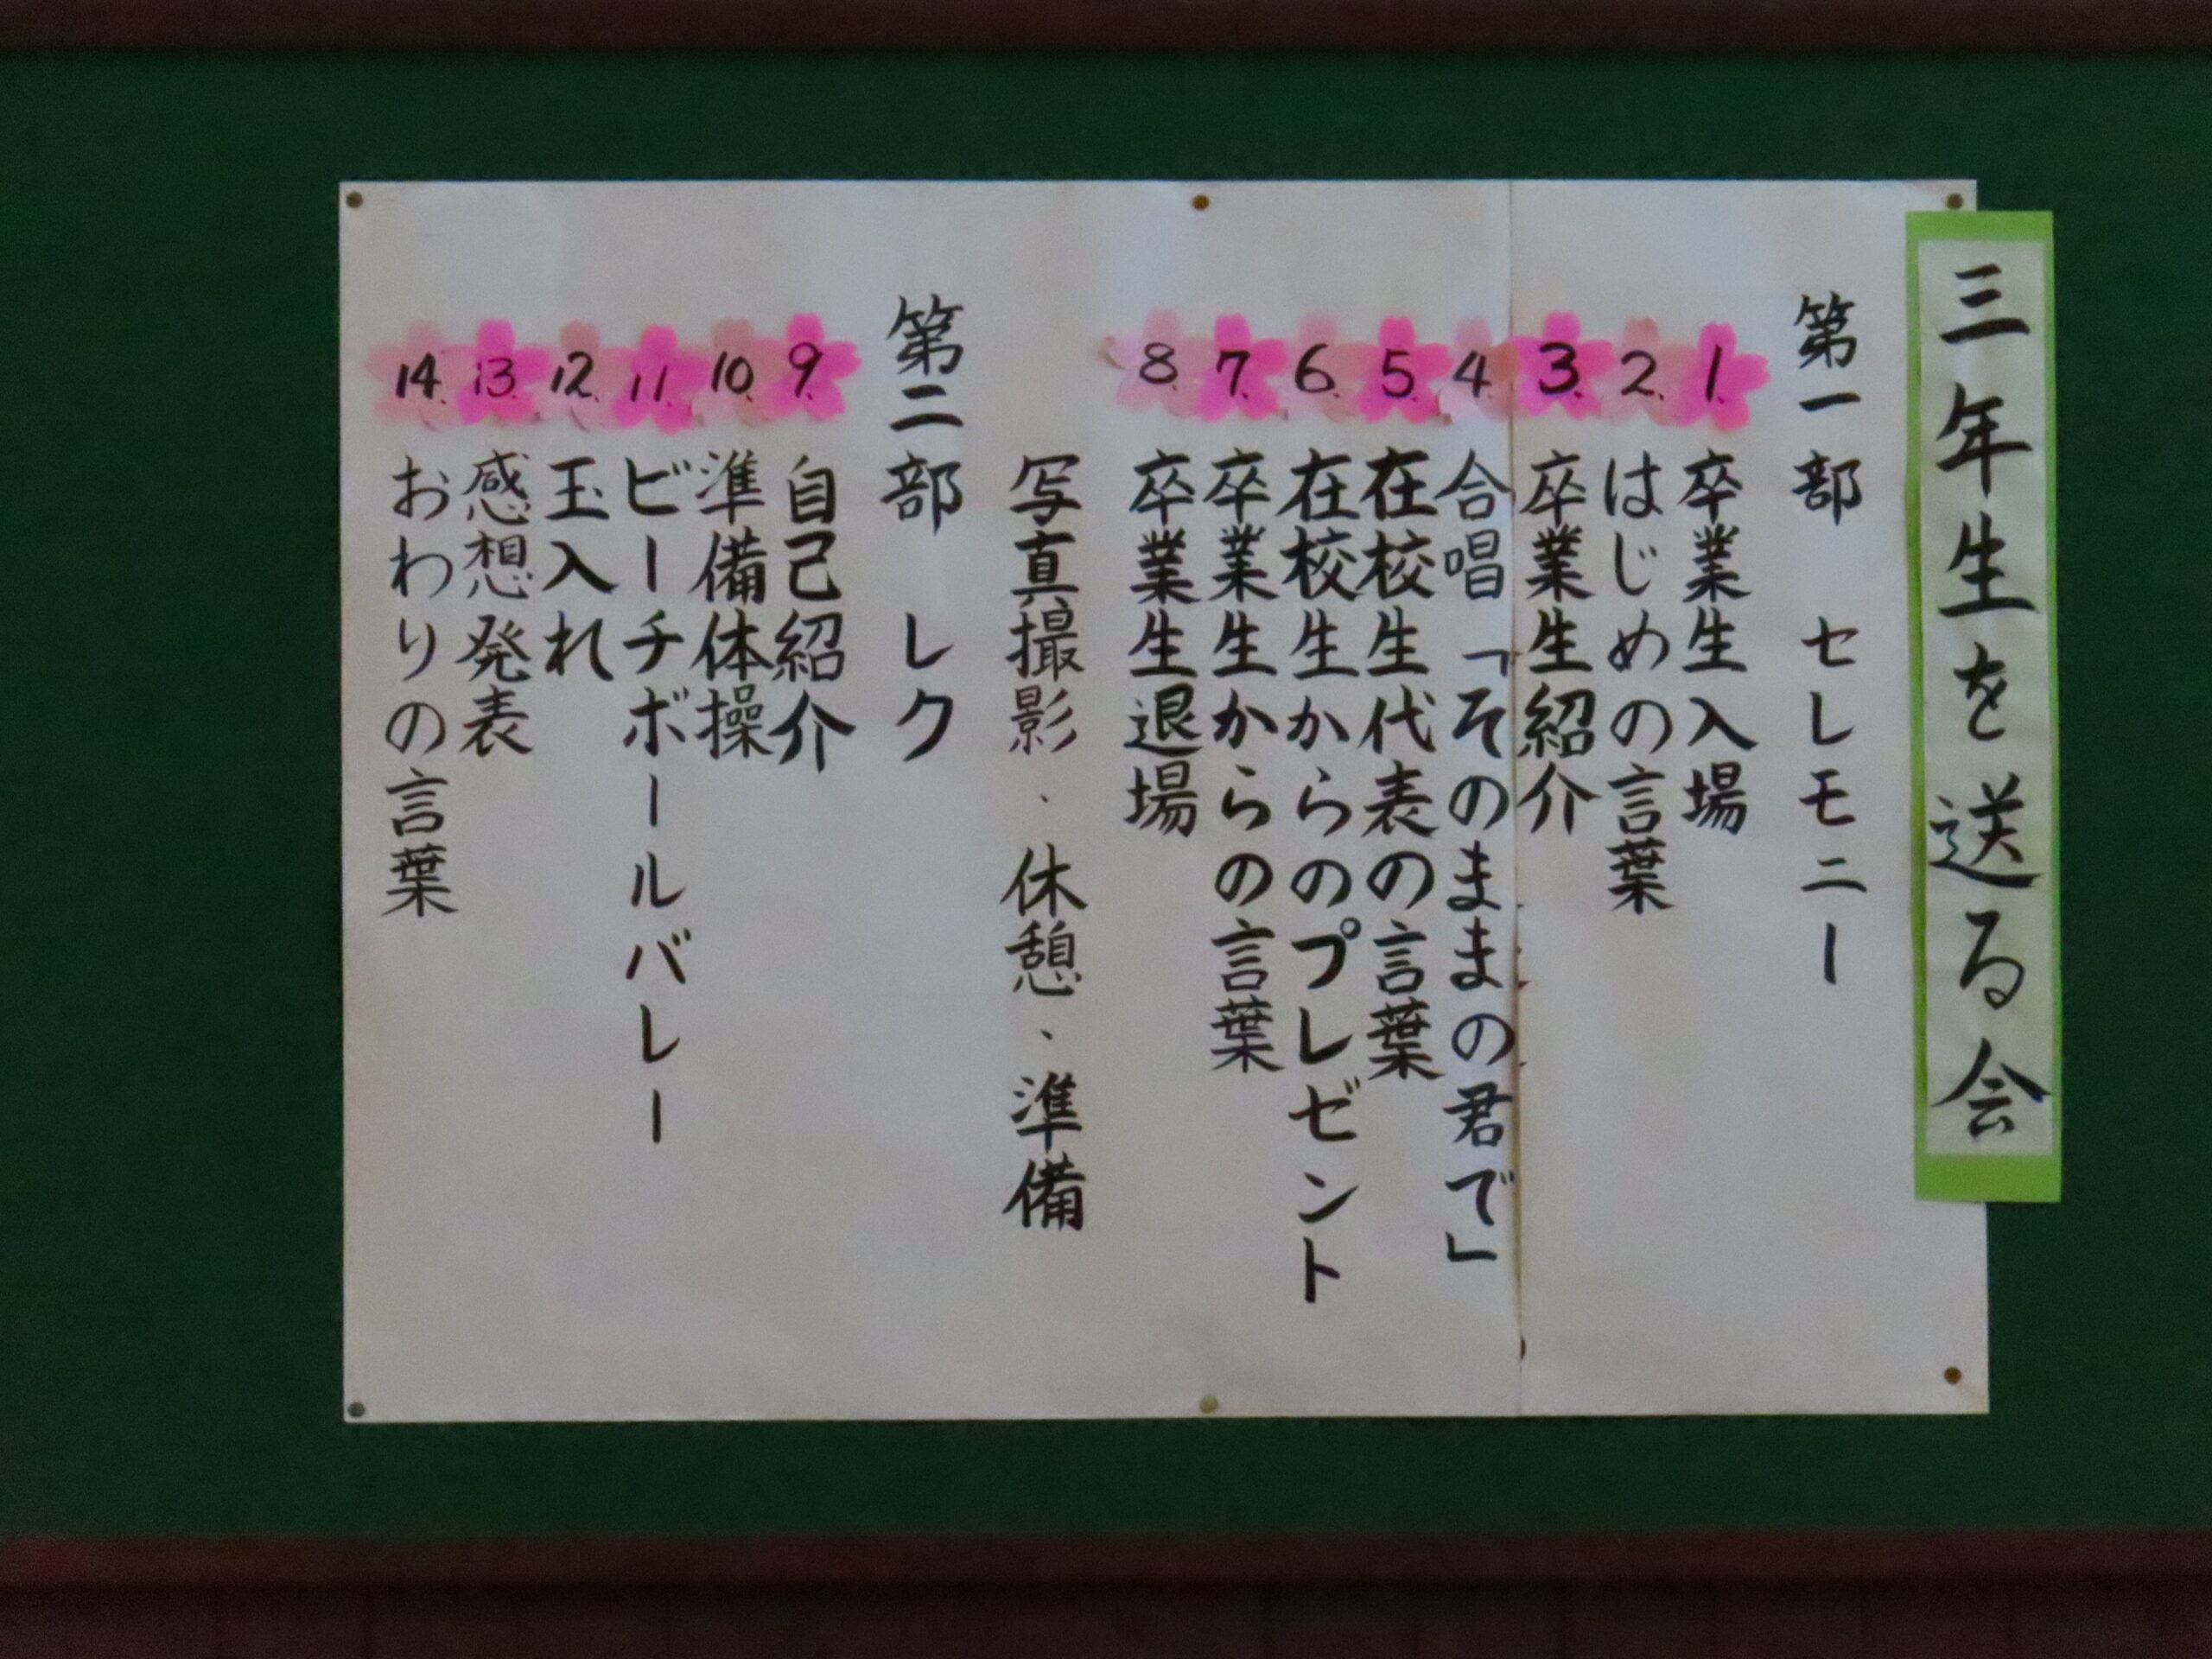 三年生を送る会
第一部 セレモニー
1. 卒業生入場
2. はじめの言葉
3. 卒業生紹介
4. 合唱「そのままの君で」
5. 在校生代表の言葉
6. 在校生からのプレゼント
7. 卒業生からの言葉
8. 卒業生退場
写真撮影、休憩、準備
第二部 レク
9. 自己紹介
10. 準備体操
11. ビーチボールバレー
12. 玉入れ
13. 感想発表
14. おわりの言葉